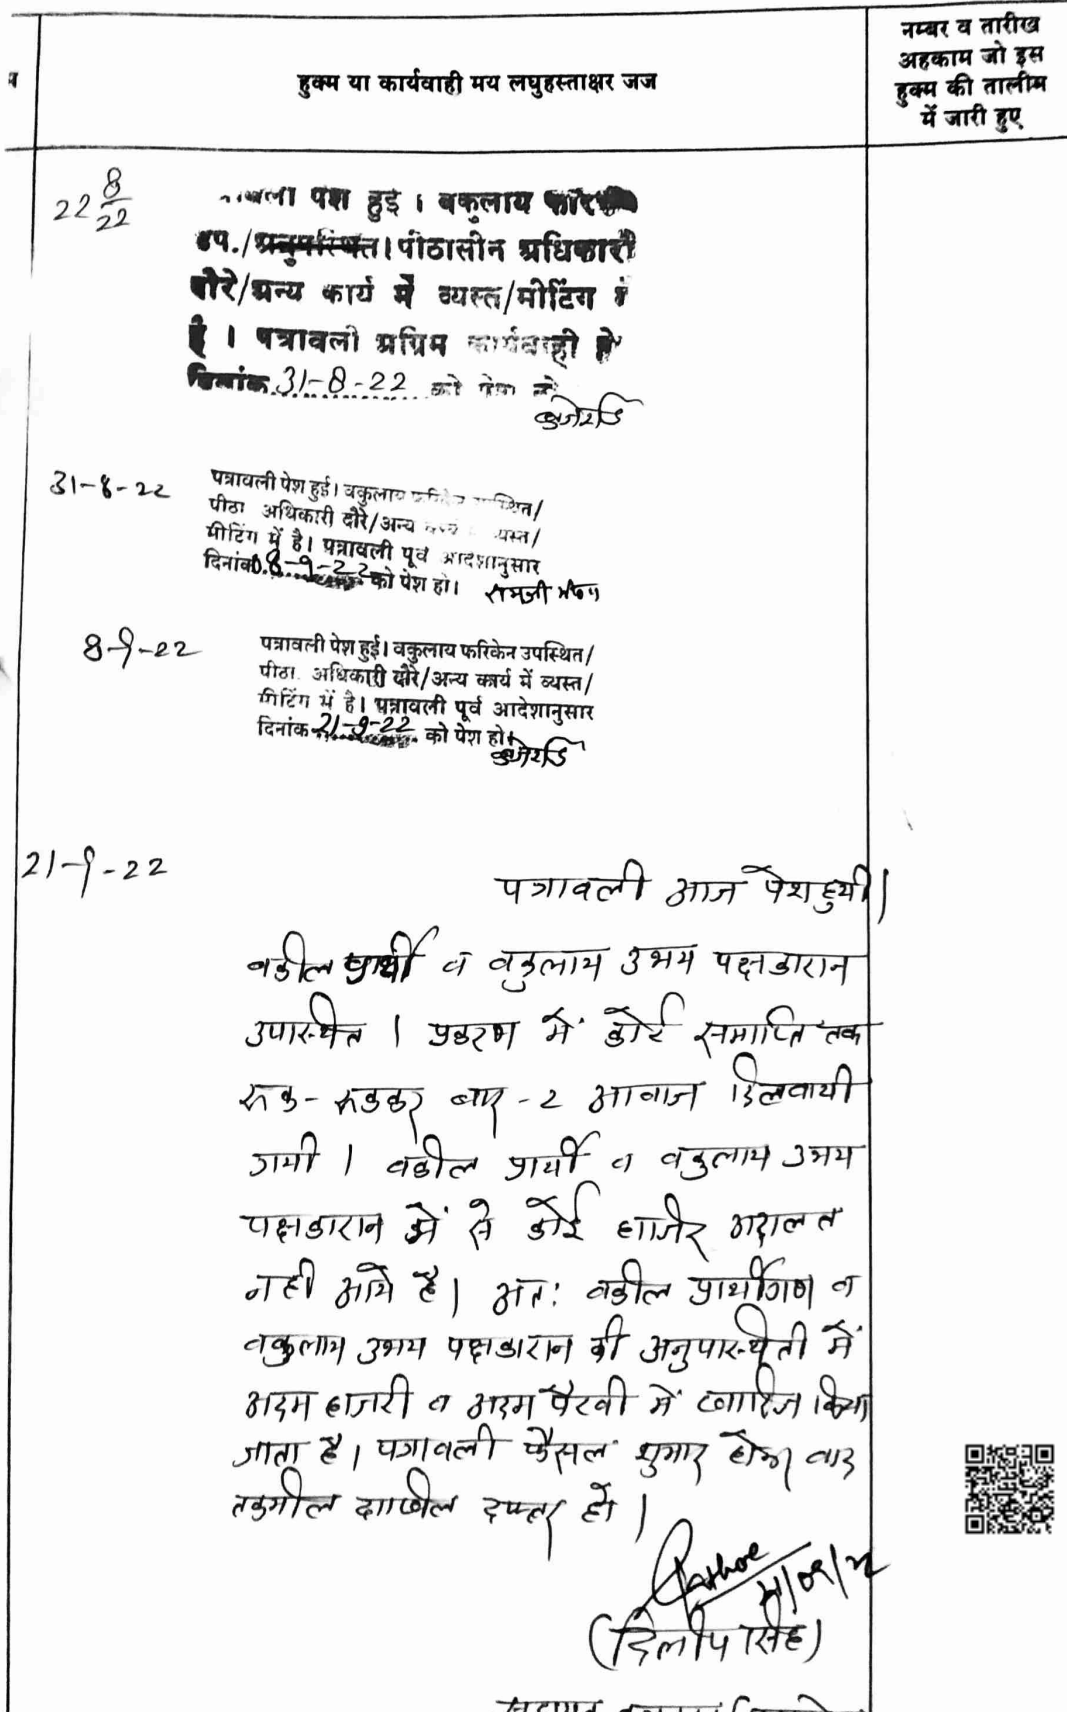 हुक्म या कार्यवाही मय लघुहस्ताक्षर जज
नम्बर व तारीख
अहकाम जो इस
हुक्म की तालीम
में जारी हुए
22 8/22
पेश हुई । वकुलाय
उप./अनुपस्थित। पीठासीन अधिकारी
दौरे/अन्य कार्य में व्यस्त/मीटिंग में
है । पत्रावली अग्रिम कार्यवाही हेतु
दिनांक 31-8-22 को पेश हो
31-8-22
पत्रावली पेश हुई। वकुलाय फरिकेन उपस्थित/
पीठा अधिकारी दौरे/अन्य कार्य में व्यस्त/
मीटिंग में है। पत्रावली पूर्व आदेशानुसार
दिनांक 08-9-22 को पेश हो।
8-9-22
पत्रावली पेश हुई। वकुलाय फरिकेन उपस्थित/
पीठा. अधिकारी दौरे/अन्य कार्य में व्यस्त/
मिटिंग में है। पत्रावली पूर्व आदेशानुसार
दिनांक 21-9-22 को पेश हो।
21-9-22
पत्रावली आज पेश हुयी।
वकील प्रार्थी व वकुलाय उभय पक्षकारान
उपस्थित । प्रकरण में कोर्ट समाप्ति तक
रूक-रूककर बार-2 आवाज दिलवायी
गयी । वकील प्रार्थी व वकुलाय उभय
पक्षकारान में से कोई हाजिर अदालत
नही आये है। अतः वकील प्रार्थीगण व
वकुलाय उभय पक्षकारान की अनुपस्थिती में
अदम हाजरी व अदम पैरवी में खारिज किया
जाता है। पत्रावली फैसल शुमार होकर बाद
तकमील दाखील दफ्तर हो ।
(दिलीप सिंह)